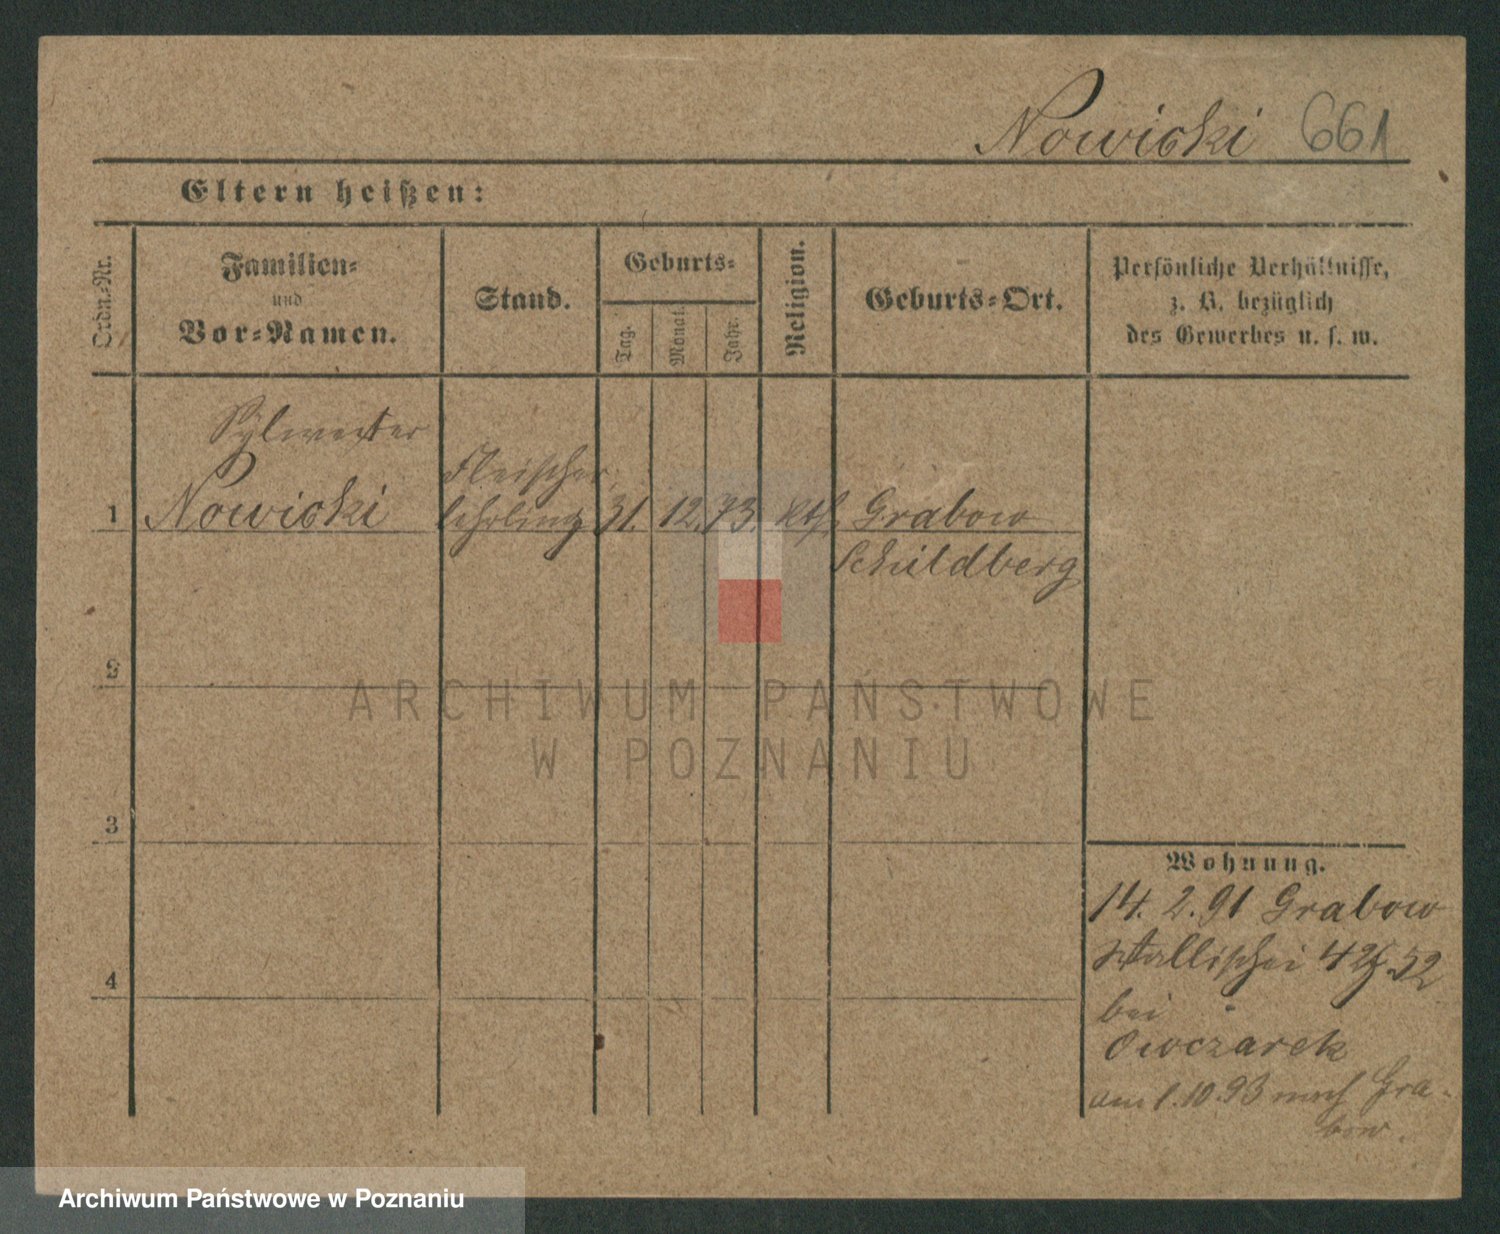 Nowicki 661
Eltern heißen:
Ordn.-Nr.
Familien-
und
Vor-Namen.
Stand.
Geburts-
Tag.
Monat.
Jahr.
Religion.
Geburts-Ort.
Persönliche Verhältnisse,
z. B. bezüglich
des Gewerbes u. s. w.
Sylwester
Fleischer
1 Nowicki lehrling 31. 12. 73. kth. Grabow
Schildberg
2
3
4
Wohnung.
14. 2. 91 Grabow
Wallischei
bei
Owczarek
am 1.10.93 nach Gra-
bow.
ARCHIWUM PAŃSTWOWE
W POZNANIU
Archiwum Państwowe w Poznaniu